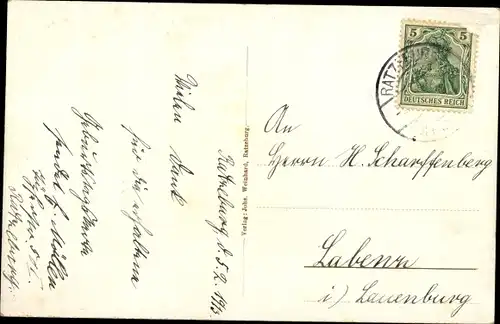 Ratzeburg d. 5.2. 1913.
Vielen Dank
für die erhaltene
Geburtstagskarte
sendet H. Möller
Ratzeburg.
Verlag: Johs. Weinhard, Ratzeburg.
5 5
DEUTSCHES REICH
RATZEBURG
An
Herrn H. Scharffenberg
Labenz
i/ Lauenburg